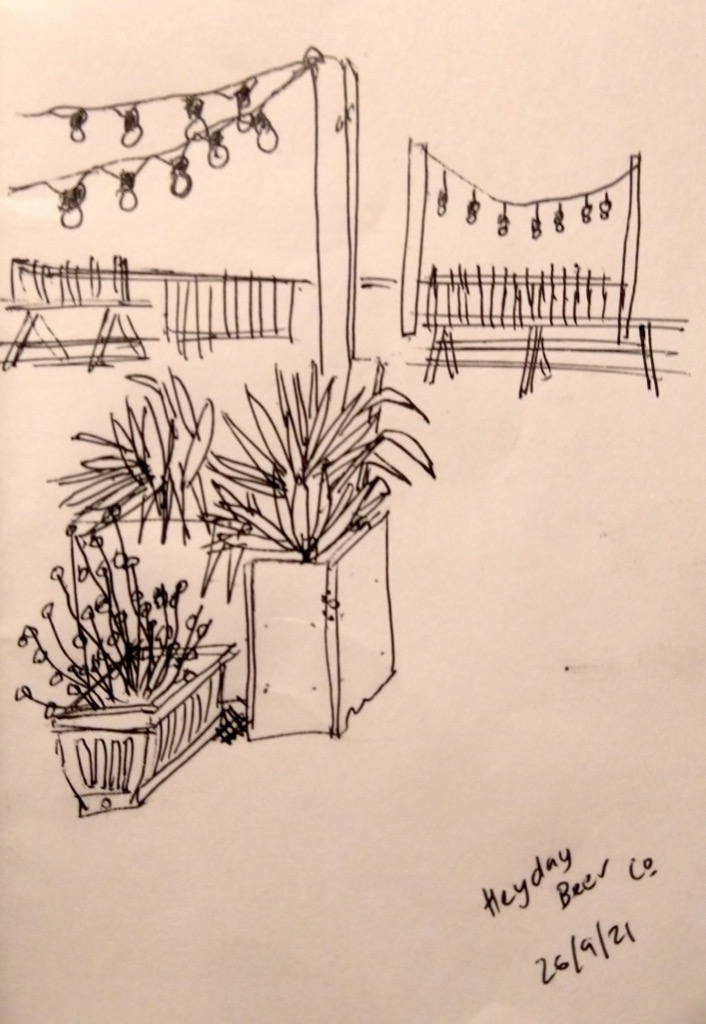 Heyday
Beer Co
26/9/21